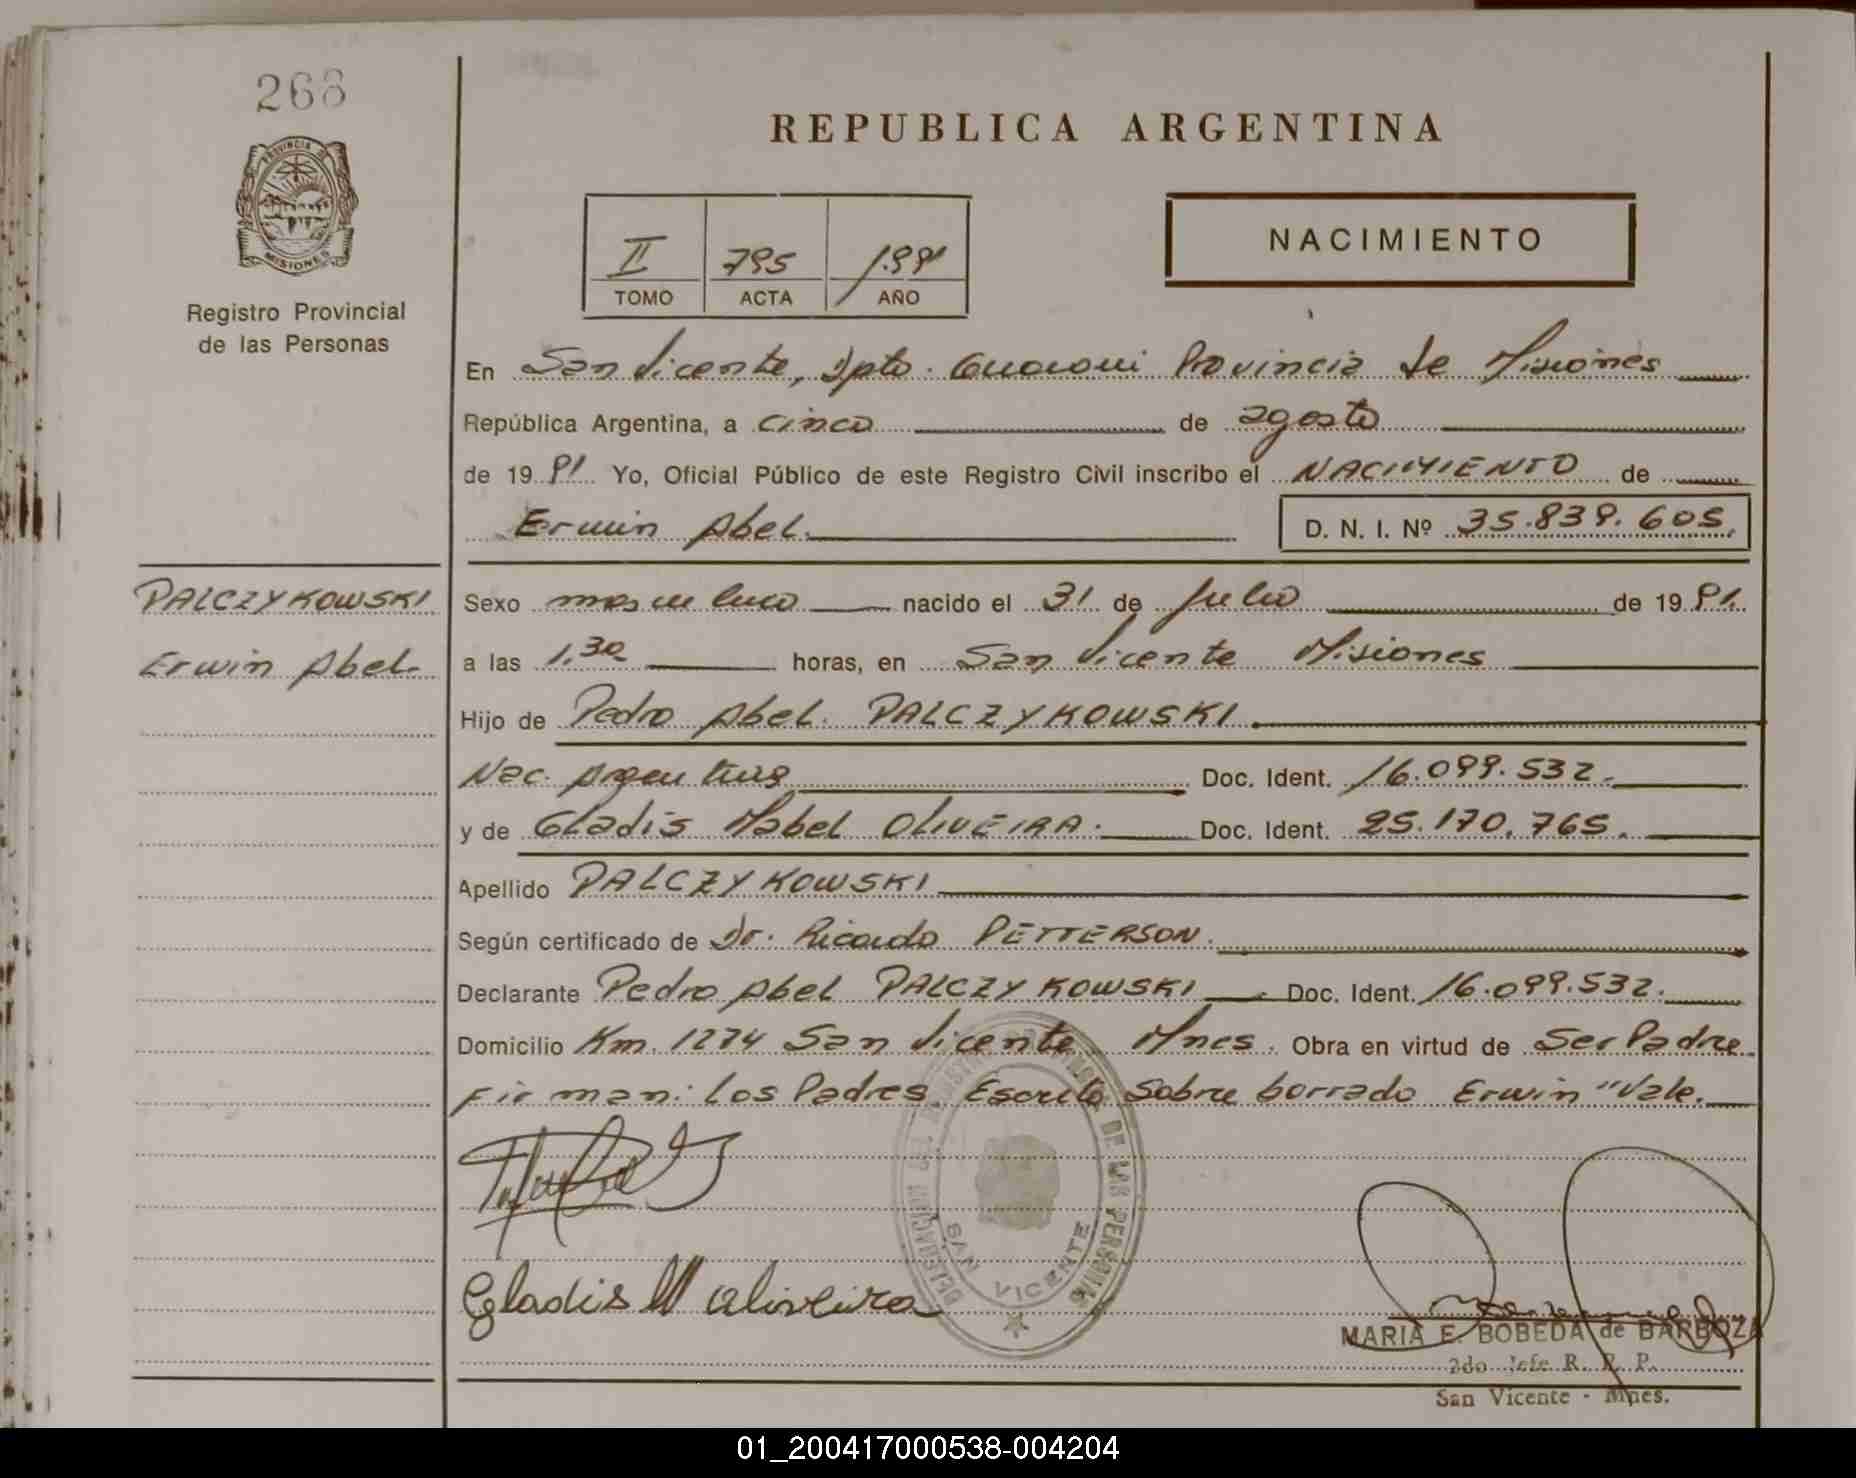 268
PROVINCIA DE
MISIONES
Registro Provincial
de las Personas
REPUBLICA ARGENTINA
II 795 1991
TOMO ACTA AÑO
NACIMIENTO
En San Vicente, Dpto. Guarani Provincia de Misiones
República Argentina, a cinco de agosto
de 19 91 Yo, Oficial Público de este Registro Civil inscribo el NACIMIENTO de
Erwin Abel. D. N. I. Nº 35.839.605.
PALCZYKOWSKI
Erwin Abel.
Sexo masculino nacido el 31 de Julio de 19 91.
a las 1.30 horas, en San Vicente Misiones
Hijo de Pedro Abel. PALCZYKOWSKI.
Nac. Argentina Doc. Ident. 16.099.532.
y de Gladis Mabel OLIVEIRA. Doc. Ident. 25.170.765.
Apellido PALCZYKOWSKI
Según certificado de Dr. Ricardo PETTERSON.
Declarante Pedro Abel PALCZYKOWSKI Doc. Ident. 16.099.532.
Domicilio Km. 1274 San Vicente Mnes. Obra en virtud de Ser Padre
Firman: Los Padres Escrito Sobre borrado Erwin "Vale.
DE LAS PERSONAS
SAN VICENTE
Gladis M oliveira
MARIA E. BOBEDA de BARBOZA
2do Jefe R. P. P.
San Vicente - Mnes.
01_200417000538-004204